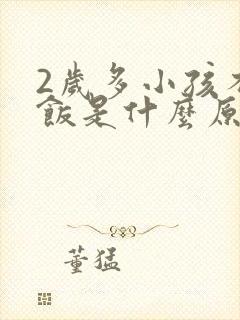 2歲多小孩
飯是什麼原
董猛